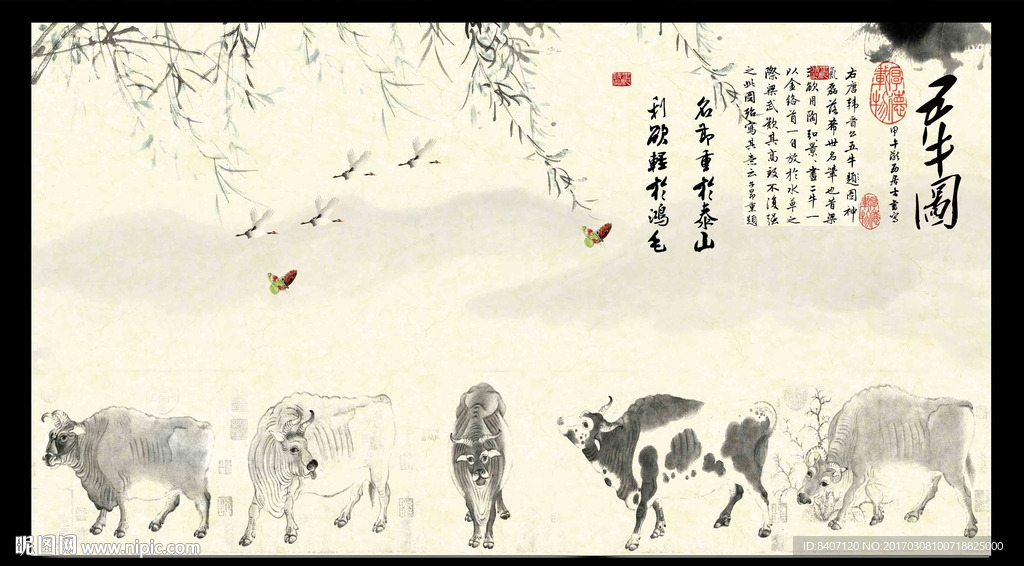 五牛圖
厚德載物
甲午
右唐韩晋公五牛题图神
氣磊落希世名筆也昔梁
欲用陶弘景畫二牛一
以金络首一自放於水草之
際梁武歎其高致不復強
之此图殆寫其意云子昂重题
名節重於泰山
利欲輕於鴻毛
昵图网 www.nipic.com
ID:8407120 NO:20170308100718825000